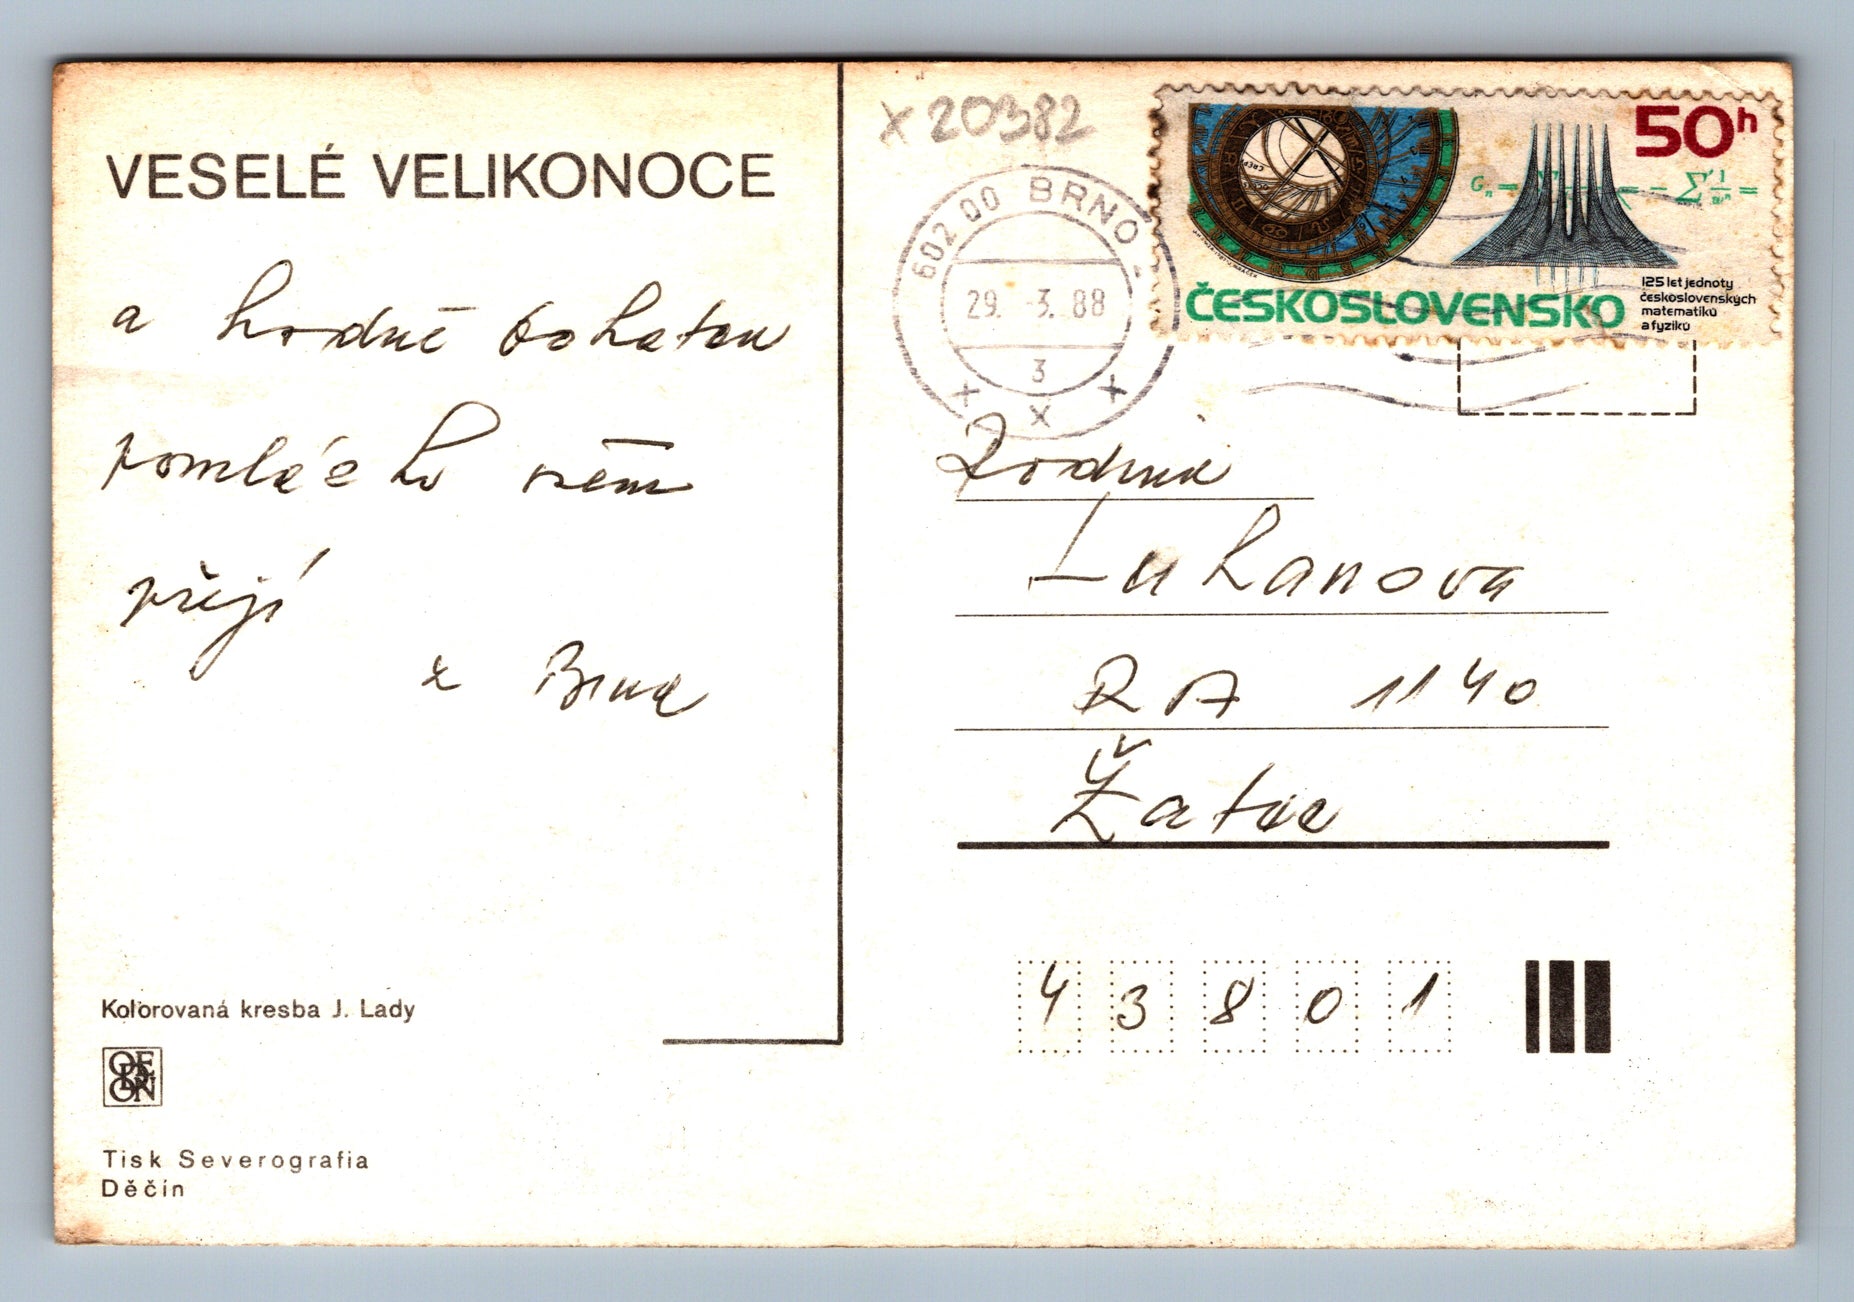 VESELÉ VELIKONOCE
a hodně bohatou
pomlázku všem
přejí
z Brna
Kolorovaná kresba J. Lady
ODEON
Tisk Severografia
Děčín
x 20382
602 00 BRNO 2
29. -3. 88
3
50h
ČESKOSLOVENSKO
125 let jednoty
československých
matematiků
a fyziků
Rodina
Lukanova
RA 1140
Žatec
43801